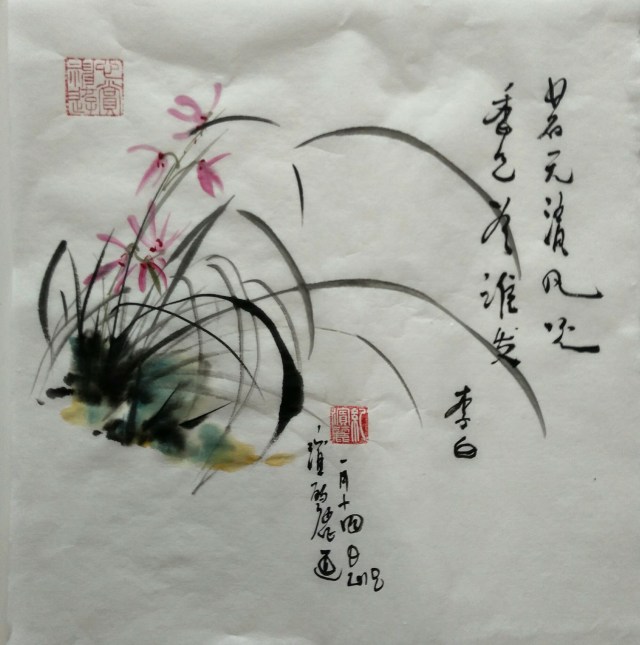 若无清风吹
香气为谁发
李白
一月十四日